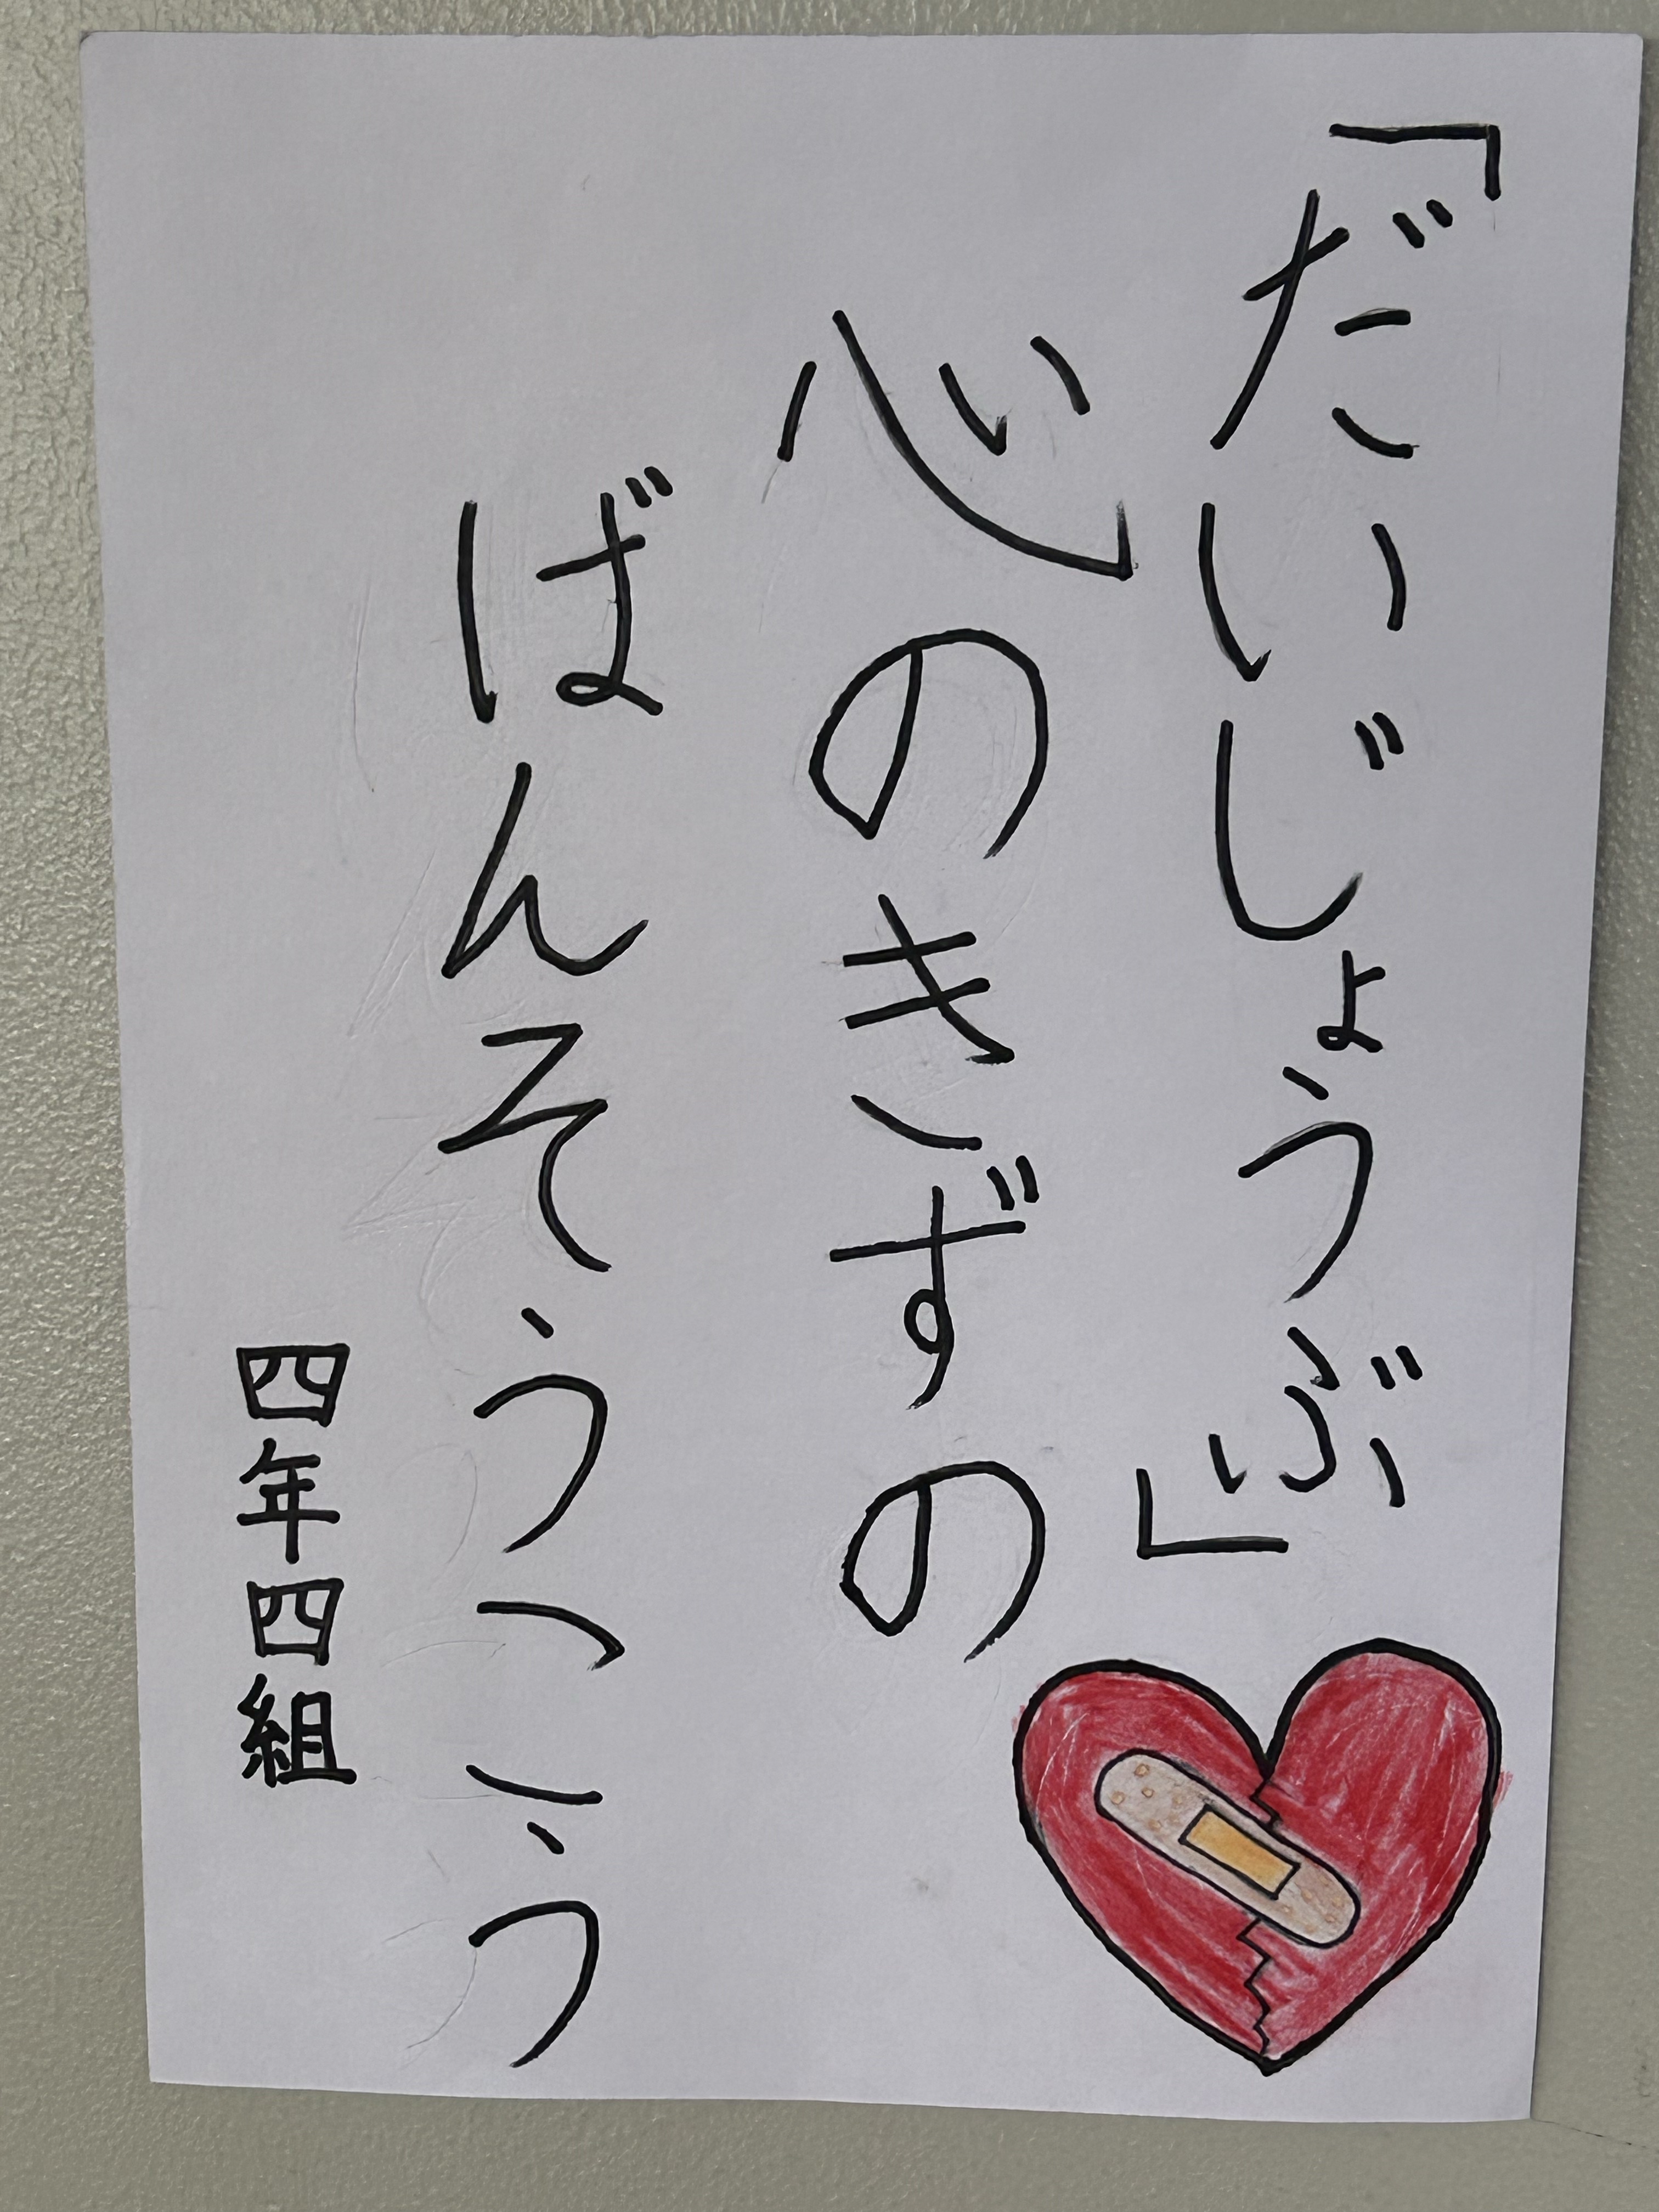 「だいじょうぶ」
心のきずの
ばんそうこう
四年四組